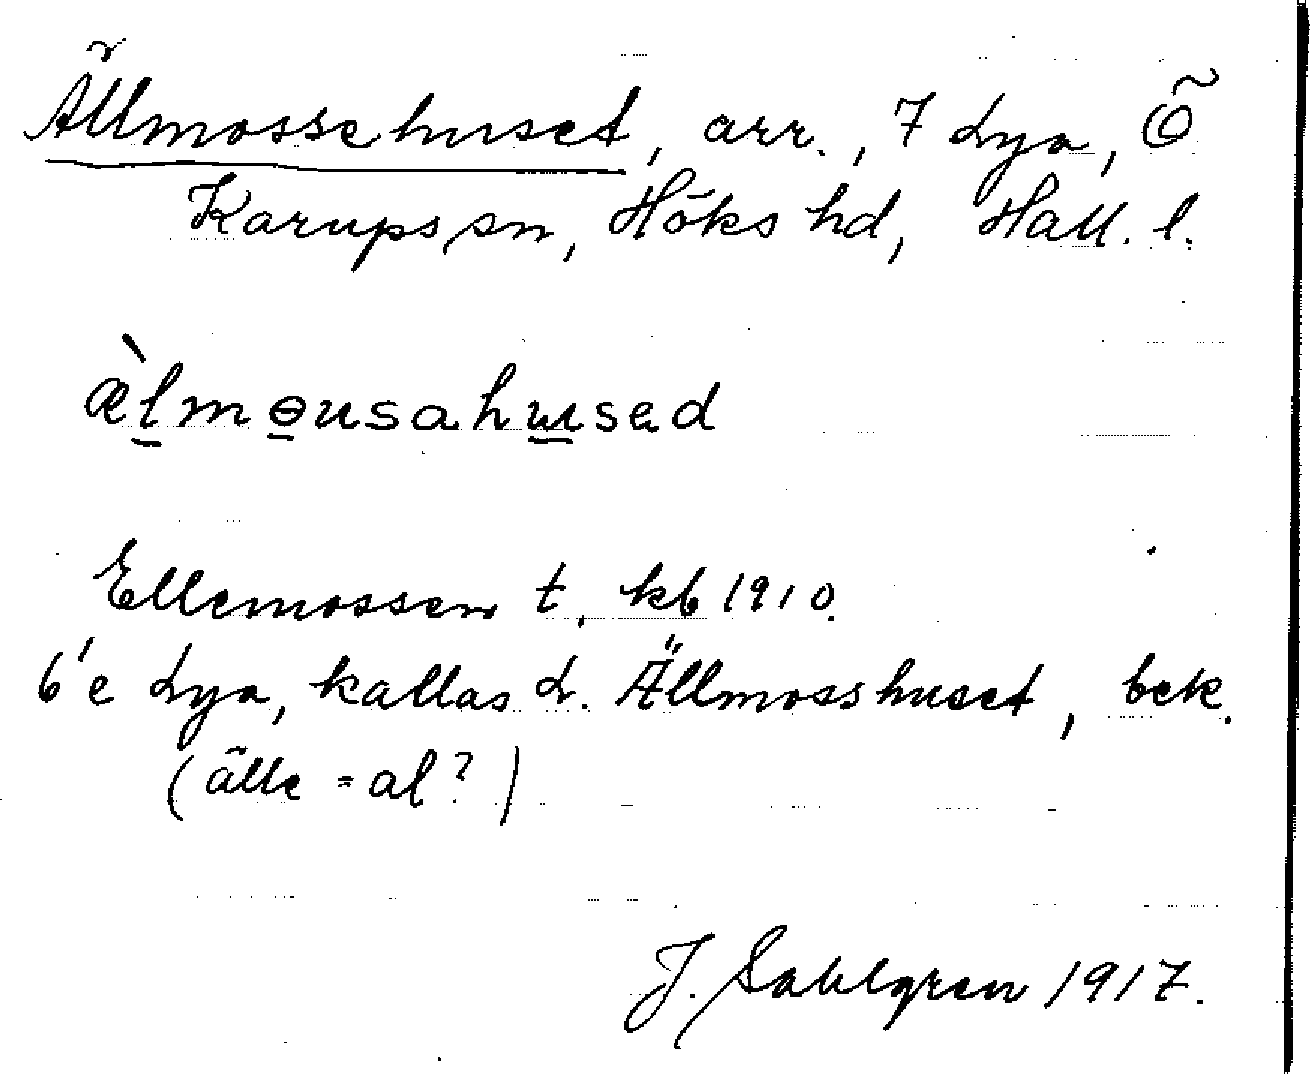 Ällmossehuset, arr., 7 Lya, Ö
Karups sn, Höks hd, Hall. l.
æ̀lmɵusahusad
Ellemossen t, kb 1910.
6'e Lya, kallas L. Ällmosshuset, bek.
(älle = al?)
J. Sahlgren 1917.